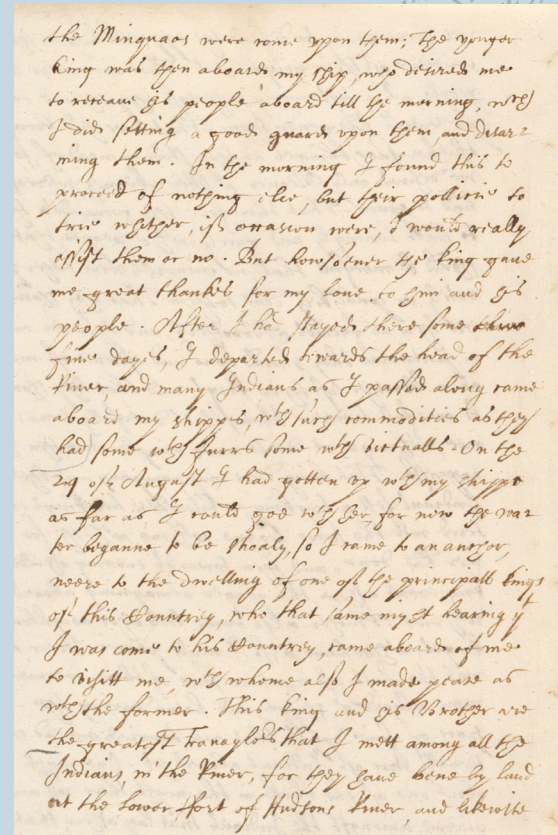 the Minquaos were come upon them; The yonger
king was then aboard my ship, who desired me
to receaue his people aboard till the morning, wch
I did setting a good guard upon them, and disar-
ming them. In the morning I found this to
proceed of nothing else, but their pollicie to
trie whither, if occasion were, I would really
assist them or no. But howsoever the king gaue
me great thankes for my loue to him and his
people. After I had stayed there some
fiue dayes, I departed towards the head of the
Riuer, and many Indians as I passed along came
aboard my shippe, wth such commodities as they
had some wth furrs some wth victualls. On the
29 of August I had gotten vp wth my shippe
as far as I could goe wth her, for now the wat
ter beganne to be shoaly, so I came to an ancher,
neere to the dwelling of one of the principall kings
of this Countrey, who that same night hearing yt
I was come to his Countrey, came aboard of me
to visitt me, wth whome also I made peace as
wth the former. This king and his Brother are
the greatest Trauaylors that I mett among all the
Indians, in the Riuer, for they haue bene by land
at the lower fort of Hudsons Riuer, and likewise